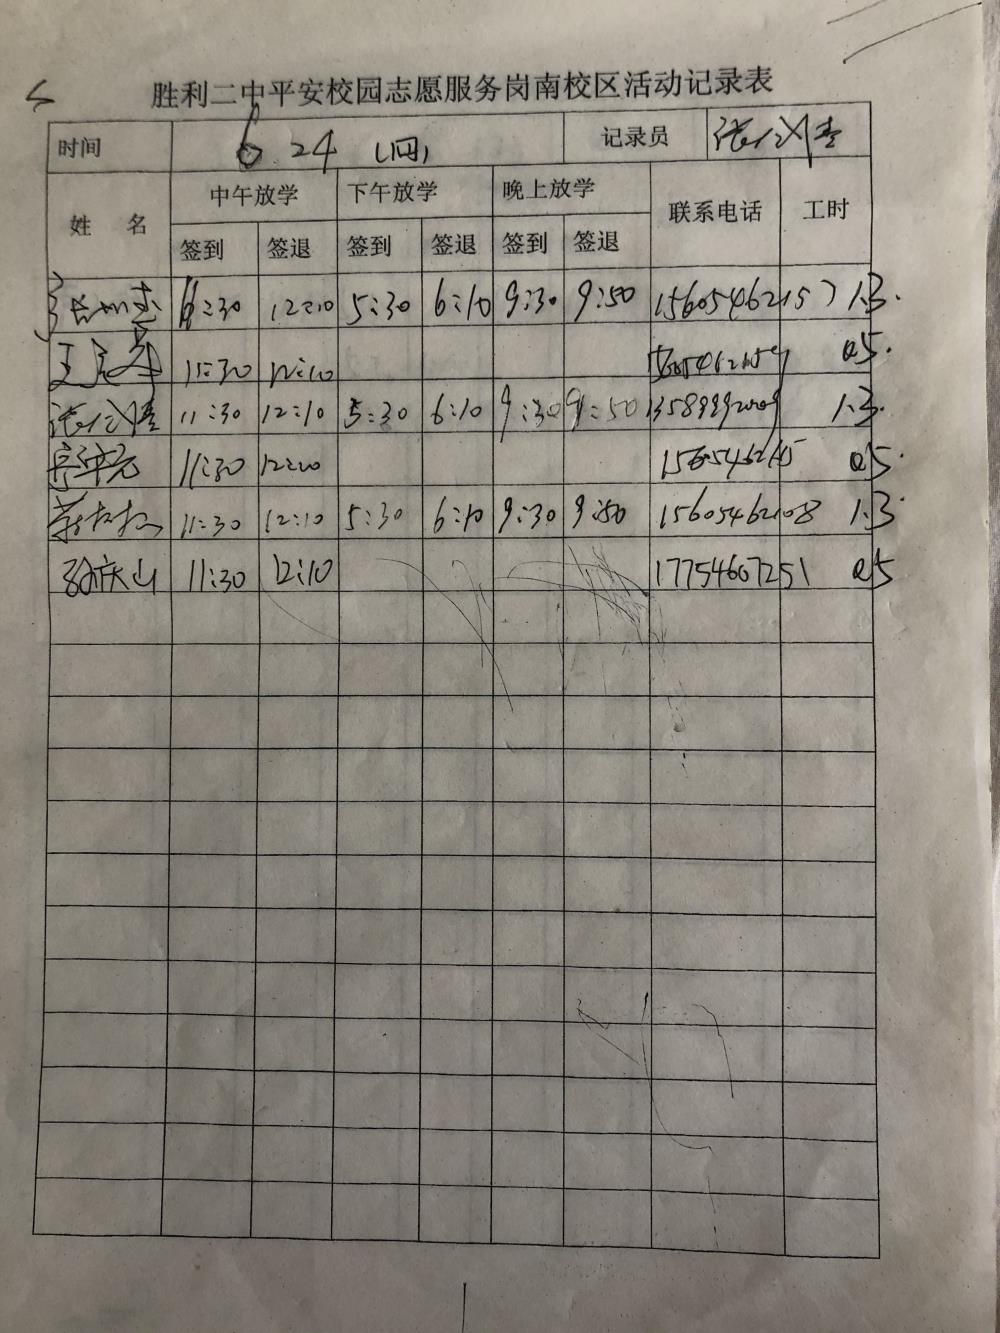 胜利二中平安校园志愿服务岗南校区活动记录表
时间 6 24 (四) 记录员
姓 名 中午放学 下午放学 晚上放学 联系电话 工时
签到 签退 签到 签退 签到 签退
:30 12:10 5:30 6:10 9:30 9:50 15605462157 1.3.
11:30 12:10 0.5.
11:30 12:10 5:30 6:10 9:30 9:50 1.3.
11:30 0.5.
11:30 12:10 5:30 6:10 9:30 9:50 15605462108 1.3.
孙庆山 11:30 12:10 17754667251 0.5